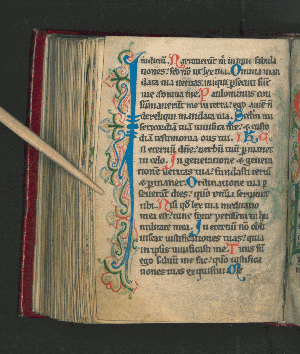 iudicium. Narraverunt m̅ iniqui fabula
tiones: sed nō ut lex tua. Omnia man
data tua veritas: iniqui persecuti sunt
me adiuva me. Paulominus con
summaverunt me in terra: ego autē n̄
dereliqui mandata tua. Secm̄ mi
sericordiā tuā vivifica me: & custo
diā testimonia oris tui.
In eternū dn̄e: verbū tuū permanet
in celo. In generatione & genera
tione veritas tua: fundasti terrā
& permanet. Ordinatione tua p
severat dies: quō omnia serviunt
tibi. Nisi qđ lex tua meditatio
mea est: tunc forte perissem in hu
militate mea. In eternū nō obli
viscar iustificationes tuas: quia
in ipsis vivificasti me. Tuus sum
ego saluū me fac: quō iustifica
tiones tuas exquisivi.